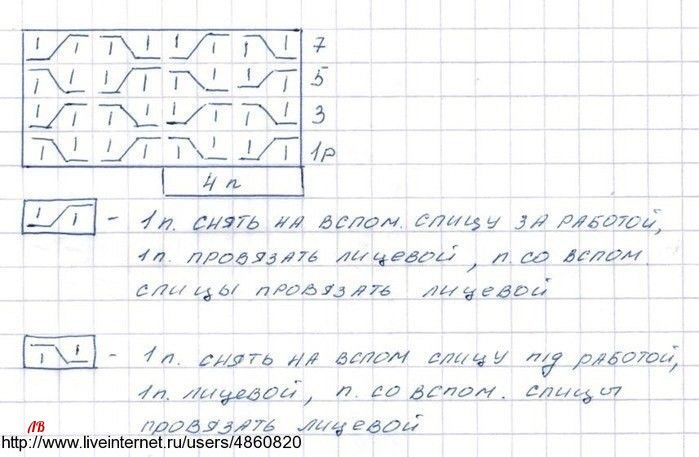 7
5
3
1р
4 п
- 1п. снять на вспом. спицу за работой,
1п. провязать лицевой, п. со вспом.
спицы провязать лицевой
- 1п. снять на вспом спицу під работой,
1п. лицевой, п. со вспом. спицы
провязать лицевой
ЛВ
http://www.liveinternet.ru/users/4860820